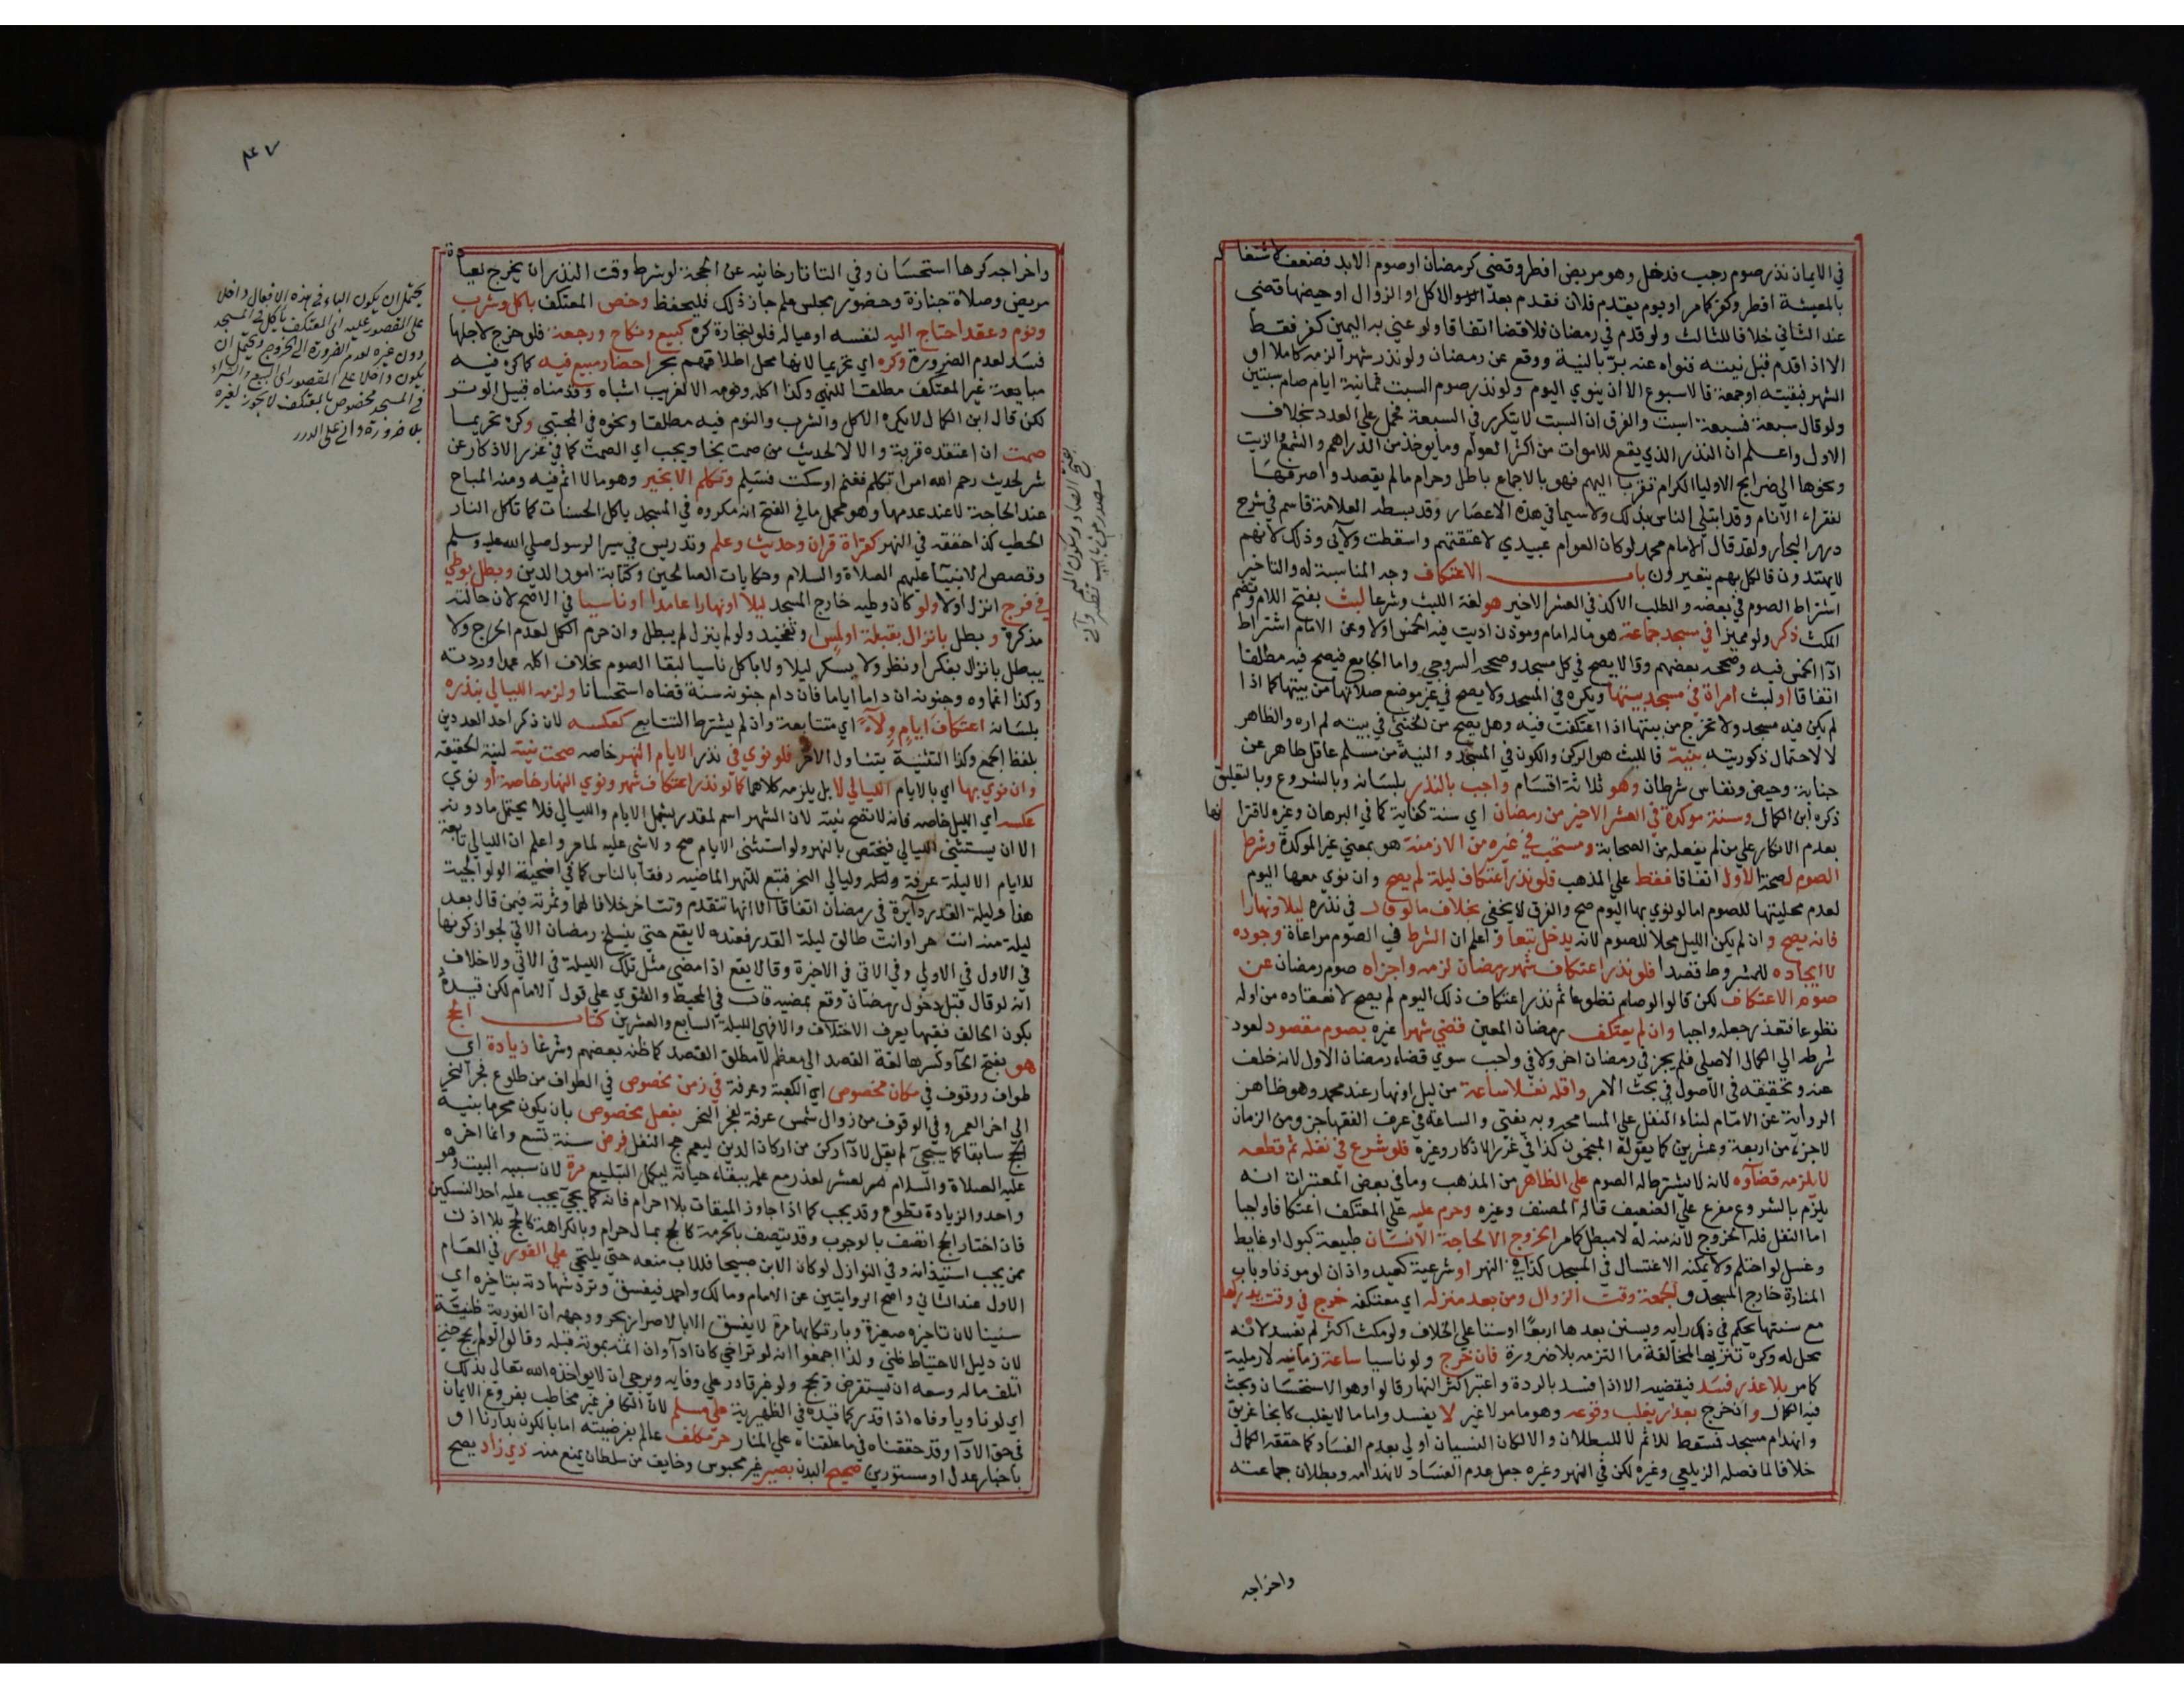 في الايمان نذر صوم رجب فدخل وهو مريض افطر وقضى كرمضان او صوم الابد فضعف لاشتغاله
بالمعيشة افطر وكفر كما مر او يوم يقدم فلان فقدم بعد الاكل او الزوال او حيضها قضى
عند الثاني خلافا للثالث ولو قدم في رمضان فلا قضا اتفاقا ولو عني به اليمين كفر فقط
الا اذا قدم قبل نيته فنواه عنه بر بالنية ووقع عن رمضان ولو نذر شهرا لزمه كاملا او
الشهر فبقيته او جمعة فالاسبوع الا ان ينوي اليوم ولو نذر صوم السبت ثمانية ايام صام سبتين
ولو قال سبعة فسبعة اسبت والفرق ان السبت لا يتكرر في السبعة فحمل على العدد بخلاف
الاول واعلم ان النذر الذي يقع للاموات من اكثر العوام وما يوخذ من الدراهم والشمع والزيت
ونحوها الى ضرايح الاوليا الكرام تقربا اليهم فهو بالاجماع باطل وحرام ما لم يقصدوا صرفها
لفقراء الانام وقد ابتلي الناس بذلك ولا سيما في هذه الاعصار وقد بسطه العلامة قاسم في شرح
درر البحار ولقد قال الامام محمد لو كان العوام عبيدي لاعتقتهم واسقطت ولآئي وذلك لانهم
لا يهتدون فالكل بهم يتعيرون باب الاعتكاف وجه المناسبة له والتاخير
اشتراط الصوم في بعضه والطلب الاكد في العشر الاخير هو لغة اللبث وشرعا لبث بفتح اللام وتضم
المكث ذكر ولو مميزا في مسجد جماعة هو ما له امام وموذن اديت فيه الخمس اولا وعن الامام اشتراط
ادآ الخمس فيه وصححه بعضهم وقالا يصح في كل مسجد وصححه السروجي واما الجامع فيصح فيه مطلقا
اتفاقا او لبث امراة في مسجد بيتها ويكره في المسجد ولا يصح في غير موضع صلاتها من بيتها كما اذا
لم يكن فيه مسجد ولا تخرج من بيتها اذا اعتكفت فيه وهل يصح من الخنثى في بيته لم اره والظاهر
لا لاحتمال ذكوريته بنية فاللبث هو الركن والكون في المسجد والنية من مسلم عاقل طاهر عن
جنابة وحيض ونفاس شرطان وهو ثلاثة اقسام واجب بالنذر بلسانه وبالشروع وبالتعليق
ذكره ابن الكمال وسنة موكدة في العشر الاخير من رمضان اي سنة كفاية كما في البرهان وغيره لاقترانها
بعدم الانكار على من لم يفعله من الصحابة ومستحب في غيره من الازمنة هو بمعنى غير الموكدة وشرط
الصوم لصحة الاول اتفاقا فقط على المذهب فلو نذر اعتكاف ليلة لم يصح وان نوى معها اليوم
لعدم محليتها للصوم اما لو نوى بها اليوم صح والفرق لا يخفى بخلاف ما لو قال في نذره ليلا ونهارا
فانه يصح وان لم يكن الليل محلا للصوم لانه يدخل تبعا واعلم ان الشرط في الصوم مراعاة وجوده
لا ايجاده للمشروط قصدا فلو نذر اعتكاف شهر رمضان لزمه واجزاه صوم رمضان عن
صوم الاعتكاف لكن قالوا لو صام تطوعا ثم نذر اعتكاف ذلك اليوم لم يصح لانعقاده من اوله
تطوعا فتعذر جعله واجبا وان لم يعتكف رمضان المعين قضى شهرا غيره بصوم مقصود لعود
شرطه الى الكمال الاصلي فلم يجز في رمضان اخر ولا في واجب سوى قضاء رمضان الاول لانه خلف
عنه وتحقيقه في الاصول في بحث الامر واقله نفلا ساعة من ليل او نهار عند محمد وهو ظاهر
الرواية عن الامام لبناء النفل على المسامحة وبه يفتى والساعة في عرف الفقهاء جزء من الزمان
لا جزء من اربعة وعشرين كما يقوله المنجمون كذا في غرر الاذكار وغيره فلو شرع في نفله ثم قطعه
لا يلزمه قضآوه لانه لا يشترط له الصوم على الظاهر من المذهب وما في بعض المعتبرات انه
يلزم بالشروع مفرع على الضعيف قاله المصنف وغيره وحرم عليه على المعتكف اعتكافا واجبا
اما النفل فله الخروج لانه منه له لا مبطل كما مر الخروج الا لحاجة الانسان طبيعة كبول او غايط
وغسل لو احتلم ولا يمكنه الاغتسال في المسجد كذا في النهر او شرعية كعيد واذان لو موذنا وباب
المنارة خارج المسجد والجمعة وقت الزوال ومن بعد منزله اي معتكفه خرج في وقت يدركها
مع سنتها يحكم في ذلك رايه ويستن بعدها اربعا او ستا على الخلاف ولو مكث اكثر لم يفسد لانه
محل له وكره تنزيها لمخالفة ما التزمه بلا ضرورة فان خرج ولو ناسيا ساعة زمانية لا رملية
كما مر بلا عذر فسد فيقضيه الا اذا فسد بالردة واعتبر اكثر النهار قالوا وهو الاستحسان وبحث
فيه الكمال وان خرج بعذر يغلب وقوعه وهو ما مر لا غير لا يفسد واما ما لا يغلب كانجا غريق
وانهدام مسجد فمسقط للاثم لا للبطلان والا لكان النسيان اولى بعدم الفساد كما حققه الكمال
خلافا لما فصله الزيلعي وغيره لكن في النهر وغيره جعل عدم الفساد لانهدامه وبطلان جماعته
واخراجه
٣٤٧
واخراجه كرها استحسانا وفي التاتارخانيه عن الحجة لو شرط وقت النذر ان يخرج لعيادة
مريض وصلاة جنازة وحضور مجلس علم جاز ذلك فليحفظ وخص المعتكف باكل وشرب
ونوم وعقد احتاج اليه لنفسه او عياله فلو لتجارة كره كبيع ونكاح ورجعة فلو خرج لاجلها
فسد لعدم الضرورة وكره اي تحريما لانها محل اطلاقهم بحر احضار مبيع فيه كما كره فيه
مبايعة غير المعتكف مطلقا للنهي وكذا اكله ونومه الا لغريب اشباه وقدمناه قبيل الوتر
لكن قال ابن الكمال لا يكره الاكل والشرب والنوم فيه مطلقا ونحوه في المجتبى وكره تحريما
صمت ان اعتقده قربة والا لا لحديث من صمت نجا ويجب اي الصمت كما في غرر الاذكار عن
شر لحديث رحم الله امرا تكلم فغنم او سكت فسلم وتكلم الا بخير وهو ما لا اثم فيه ومنه المباح
عند الحاجة لا عند عدمها وهو محمل ما في الفتح انه مكروه في المسجد ياكل الحسنات كما تاكل النار
الحطب كذا حققه في النهر كقراة قران وحديث وعلم وتدريس في سير الرسول صلى الله عليه وسلم
وقصص الانبيآ عليهم الصلاة والسلام وحكايات الصالحين وكتابة امور الدين وبطل بوطي
في فرج انزل اولا ولو كان وطيه خارج المسجد ليلا او نهارا عامدا او ناسيا في الاصح لان حالته
مذكرة وبطل بانزال بقبلة او لمس او تفخيذ ولو لم ينزل لم يبطل وان حرم الكل لعدم الحرج ولا
يبطل بانزال بفكر او نظر ولا بسكر ليلا ولا باكل ناسيا لبقا الصوم بخلاف اكله عمدا وردته
وكذا اغماوه وجنونه ان داما اياما فان دام جنونه سنة قضاه استحسانا ولزمه الليالي بنذره
بلسانه اعتكاف ايام ولآء اي متتابعة وان لم يشترط التتابع كعكسه لان ذكر احد العددين
بلفظ الجمع وكذا التثنية يتناول الاخر فلو نوى في نذر الايام النهر خاصة صحت نيته لنية الحقيقة
وان نوى بها اي بالايام الليالي لا بل يلزمه كلاهما كما لو نذر اعتكاف شهر ونوى النهار خاصة او نوى
عكسه اي الليل خاصة فانه لا تصح نيته لان الشهر اسم لمقدر يشمل الايام والليالي فلا يحتمل ما دونه
الا ان يستثنى الليالي فيختص بالنهر ولو استثنى الايام صح ولا شي عليه لما مر واعلم ان الليالي تابعة
للايام الا ليلة عرفة وليالي النحر فتبع للنهر الماضيه رفقا بالناس كما في اضحية الولوالجية
هذا وليلة القدر دآيرة في رمضان اتفاقا الا انها تتقدم وتتاخر خلافا لهما وثمرته فيمن قال بعد
ليلة منه انت حر او انت طالق ليلة القدر فعنده لا يقع حتى ينسلخ رمضان الاتي لجواز كونها
في الاول في الاولى وفي الاتي في الاخيرة وقالا يقع اذا مضى مثل تلك الليلة في الاتي ولا خلاف
انه لو قال قبل دخول رمضان وقع بمضيه قال في المحيط والفتوى على قول الامام لكن قيده
بكون الحالف فقيها يعرف الاختلاف والا فهي الليلة السابع والعشرين كتاب الحج
هو بفتح الحآ وكسرها لغة القصد الى معظم لا مطلق القصد كما ظنه بعضهم وشرعا زيارة اي
طواف ووقوف في مكان مخصوص اي الكعبة وعرفة في زمن مخصوص في الطواف من طلوع فجر النحر
الى اخر العمر وفي الوقوف من زوال شمس عرفة لفجر النحر بفعل مخصوص بان يكون محرما بنية
الحج سابقا كما سيجي لم يقل لادآ ركن من اركان الدين ليعم حج النفل فرض سنة تسع وانما اخره
عليه الصلاة والسلام لعشر لعذر مع علمه ببقاء حياته ليكمل التبليغ مرة لان سببه البيت وهو
واحد والزيادة تطوع وقد يجب كما اذا جاوز الميقات بلا احرام فانه كما يجي يجب عليه احد النسكين
فان اختار الحج اتصف بالوجوب وقد يتصف بالحرمة كالحج بمال حرام وبالكراهة كالحج بلا اذن
ممن يجب استيذانه وفي النوازل لو كان الابن صبيحا فللاب منعه حتى يلتحي على الفور في العام
الاول عند الثاني واصح الروايتين عن الامام ومالك واحمد فيفسق وترد شهادته بتاخيره اي
سنينا لان تاخيره صغيرة وبارتكابها مرة لا يفسق الا بالاصرار بحر ووجهه ان الفورية ظنية
لان دليل الاحتياط ظني ولذا اجمعوا انه لو تراخى كان ادآ وان اثم بموته قبله وقالوا لو لم يحج حتى
اتلف ماله وسعه ان يستقرض ويحج ولو غير قادر على وفايه ويرجى ان لا يواخذه الله تعالى بذلك
اي لو ناويا وفاه اذا قدر كما قيده في الظهيرية على مسلم لان الكافر غير مخاطب بفروع الايمان
في حق الادآ وقد حققناه فيما علقناه على المنار حر مكلف عالم بفرضيته اما بالكون بدارنا او
باخبار عدل او مستورين صحيح البدن بصير غير محبوس وخايف من سلطان يمنع منه ذي زاد يصح
يحتمل ان يكون الباء في هذه الافعال داخل
على المقصور عليه اي المعتكف ياكل في المسجد
دون غيره لعدم الضرورة الى الخروج ويحتمل ان
يكون داخلا على المقصور اي البيع والشراء
في المسجد مخصوص بالمعتكف لا يجوز لغيره
بلا ضرورة واني على الدرر
بفتح الصاد وسكون الميم
مصدر من باب نصر وانى